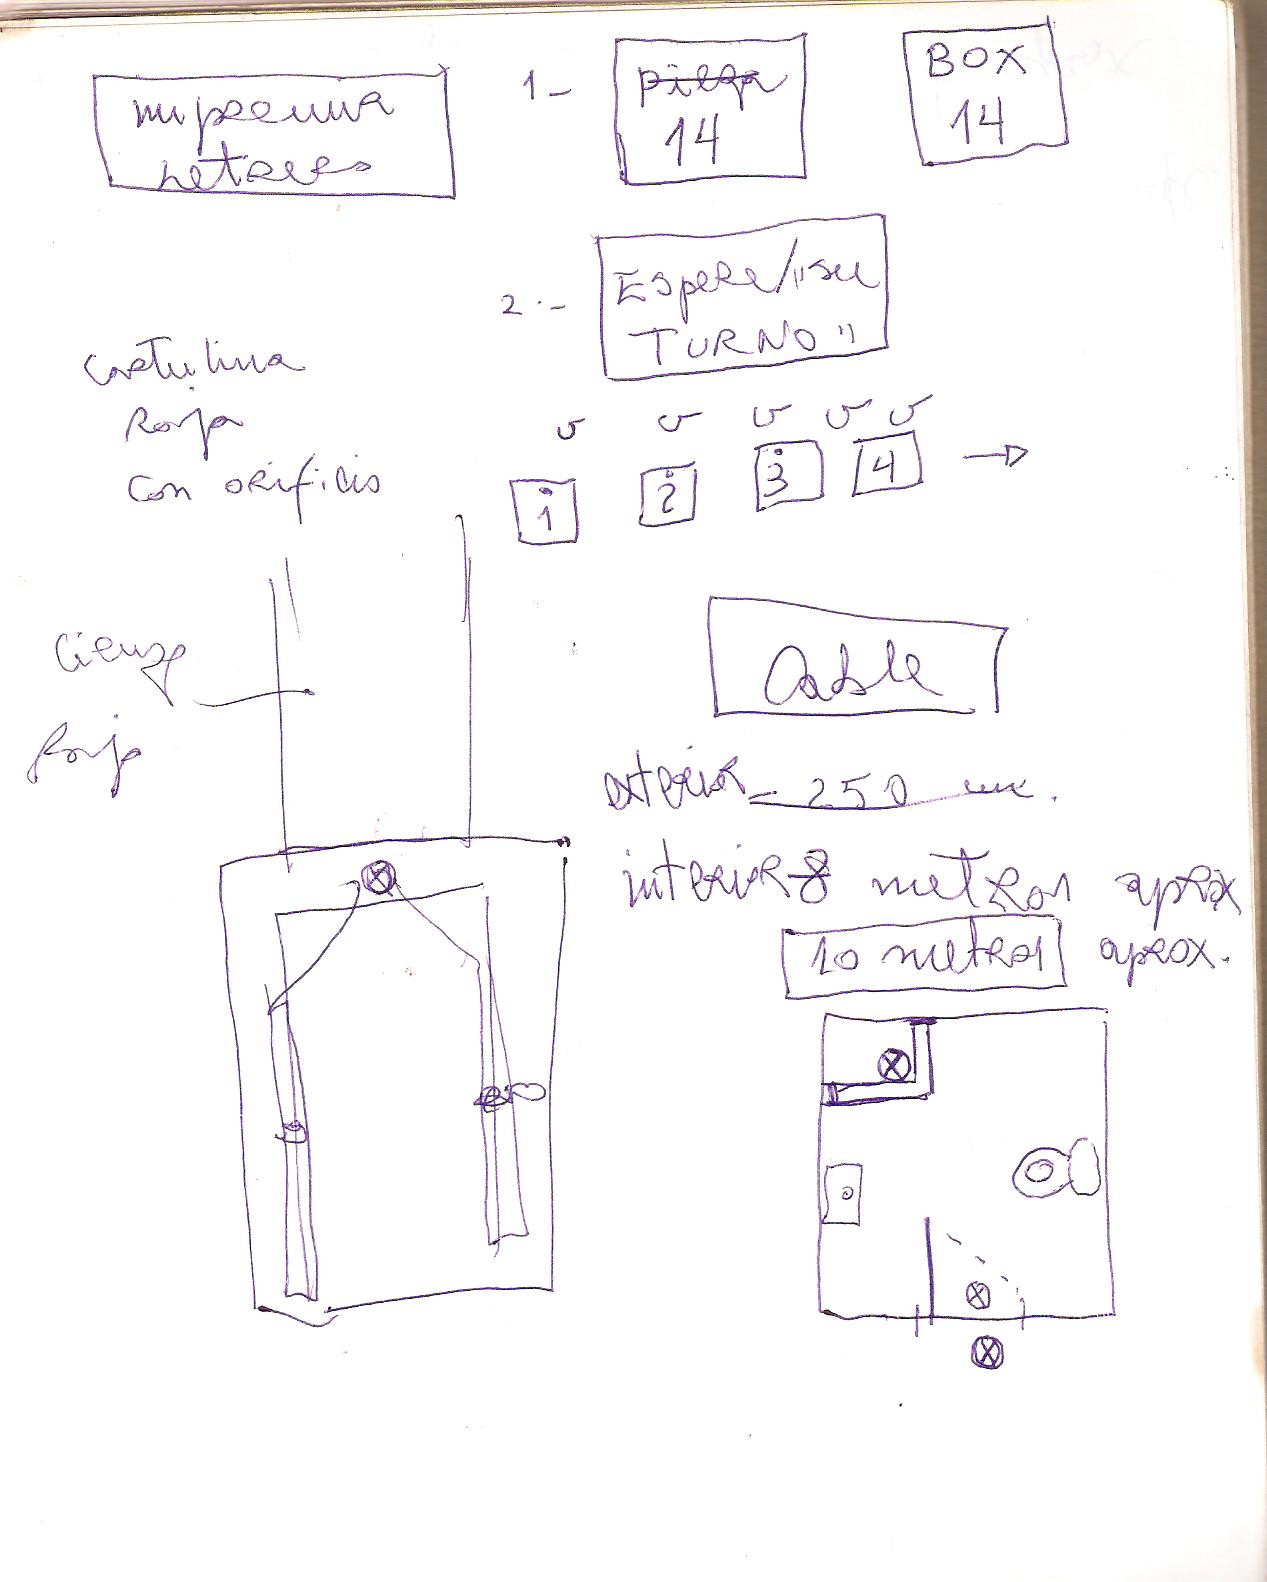 imprenta
Letreros
1- pieza
14
BOX
14
2.- Espere/"su
TURNO"
Cartulina
Roja
con orificio
1 2 3 4
Roja
Cable
exterior = 250 mc.
interior 8 metros aprox
10 metros aprox.